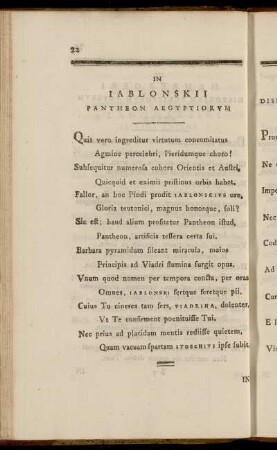 22
IN
IABLONSKII
PANTHEON AEGYPTIORVM
Quis vero ingreditur virtutum concomitatus
Agmine percelebri, Pieridumque choro!
Subsequitur numerosa cohors Orientis et Austri,
Quicquid et eximii pristinus orbis habet.
Fallor, an hoc Pindi prodit IABLONSKIVS ore,
Gloria teutonici, magnus honosque, soli?
Sic est; haud alium profitetur Pantheon istud,
Pantheon, artificis tessera certa sui.
Barbara pyramidum sileant miracula, maius
Principis ad Viadri flumina surgit opus.
Vnum quod nomen per tempora cuncta, per oras
Omnes, IABLONSKI fertque feretque pii.
Cuius Tu cineres tam sero, VIADRINA, dolenter,
Vt Te confirment poenituisse Tui,
Nec prius ad placidam mentis rediisse quietem,
Quam vacuam spartam STOSCHIVS ipse subit.
IN
DISS
Pro
Ne
Impe
Nec
Cod
Ad
Cur
E l
Vix